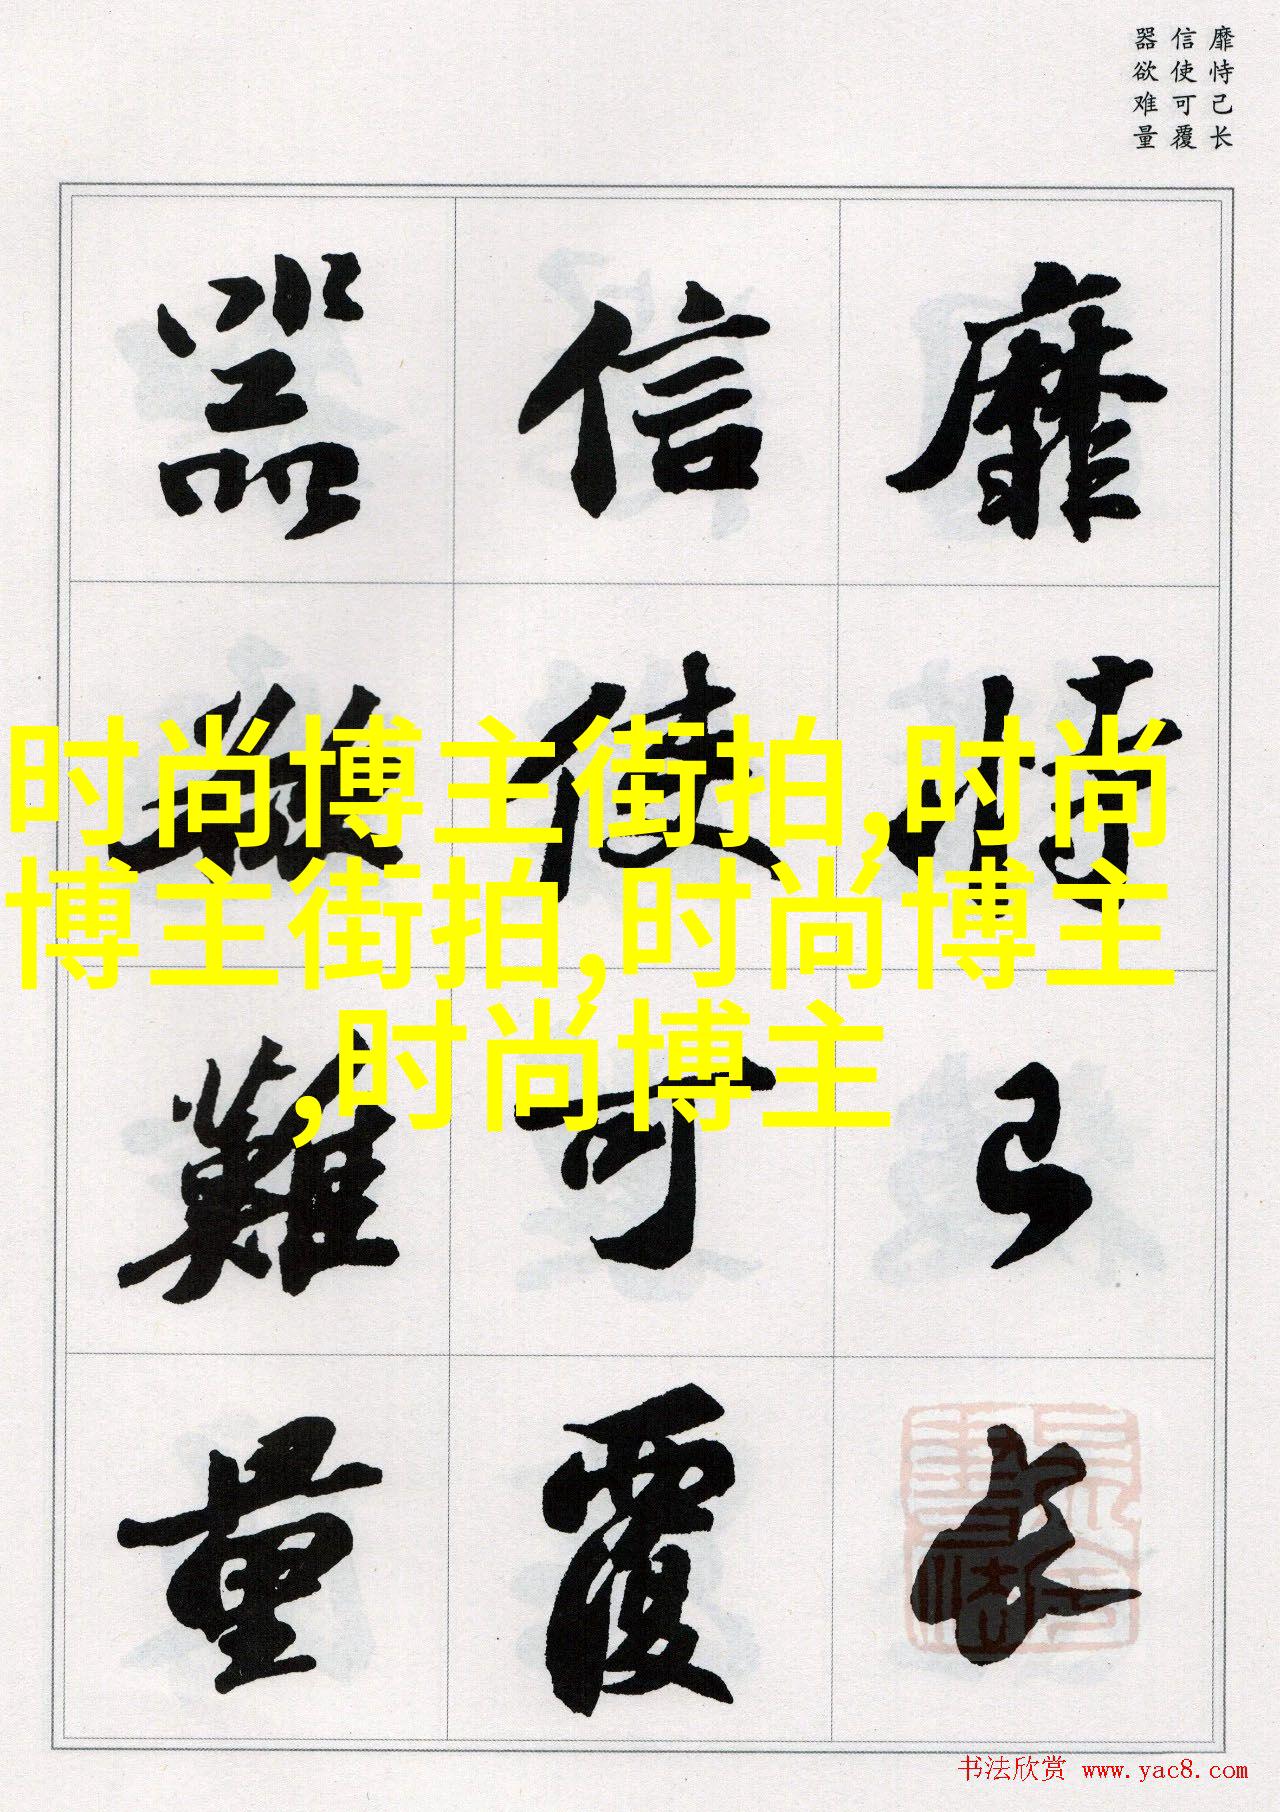 靡恃己长
信使可覆
器欲难量
靡恃己长
信使可覆
器欲難量
时尚博主街拍,时尚
博主街拍,时尚博主
,时尚博主
书法欣赏 www.yac8.com